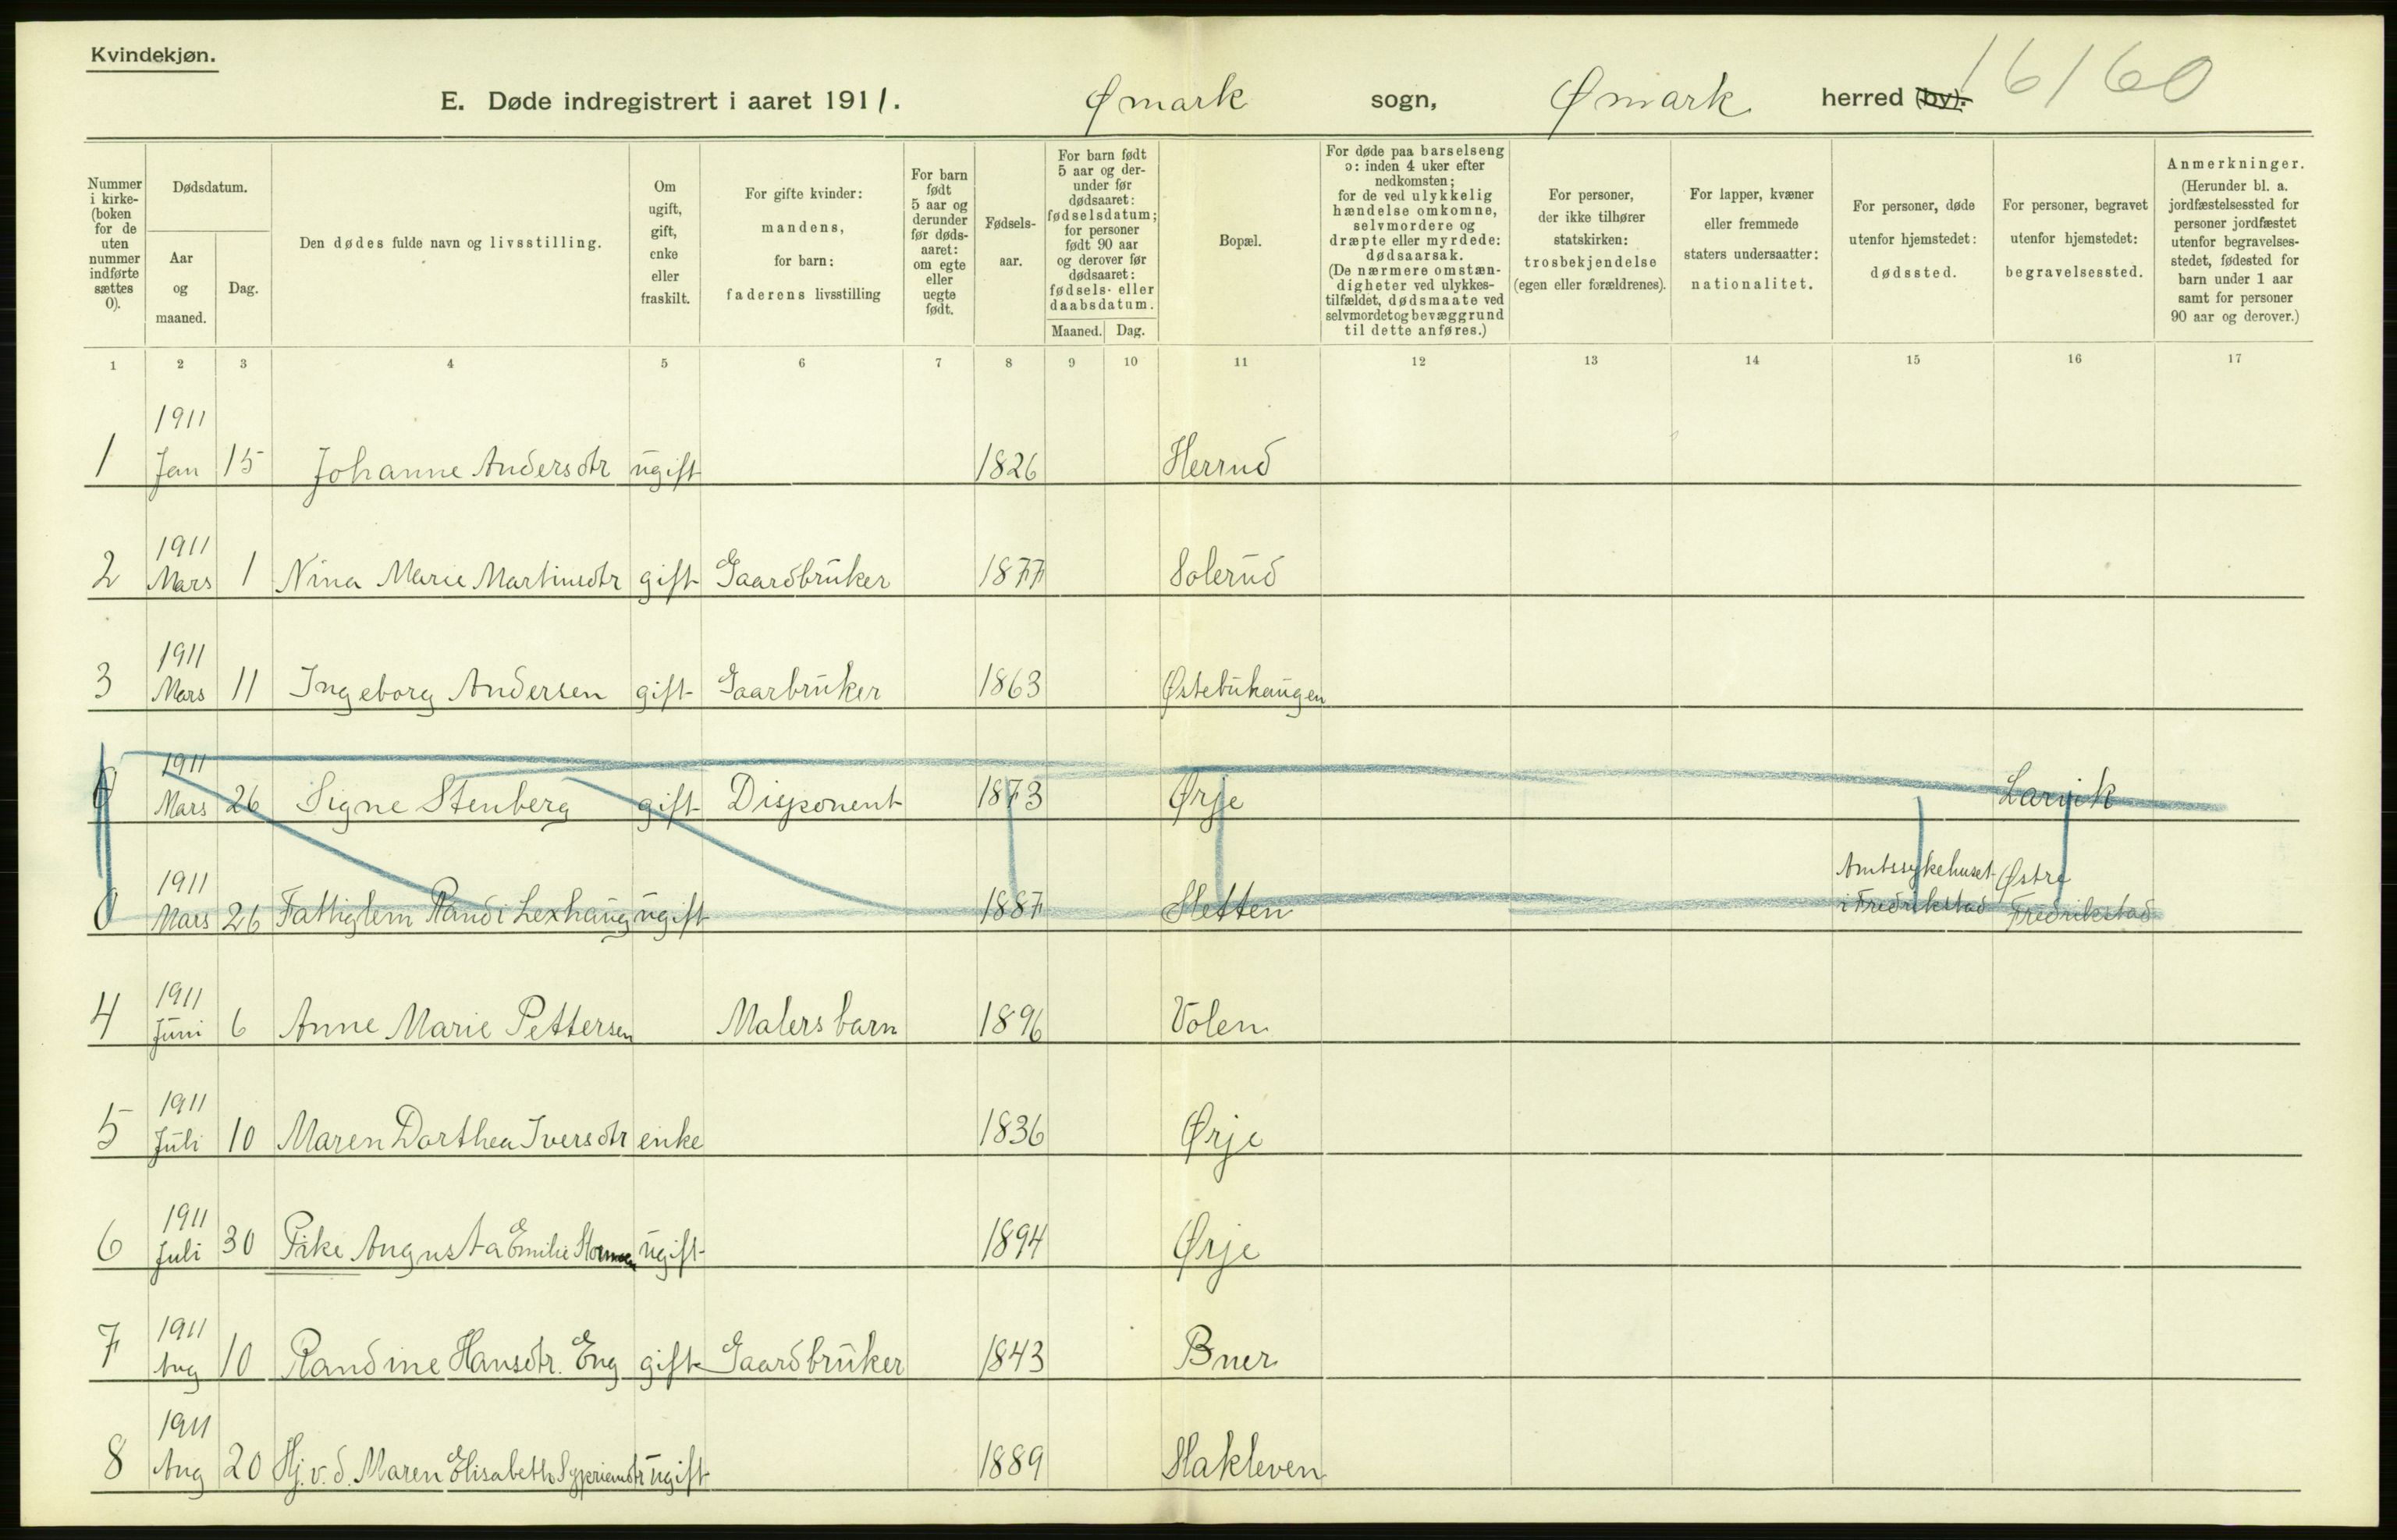 Kvindekjøn.
16/60
E. Døde indregistrert i aaret 1911. Ømark sogn, Ømark herred (by).
Nummer i kirke- (boken for de uten nummer indførte sættes 0).
Dødsdatum.
Aar og maaned.
Dag.
Den dødes fulde navn og livsstilling.
Om ugift, gift, enke eller fraskilt.
For gifte kvinder: mandens, for barn: faderens livsstilling
For barn født 5 aar og derunder før døds- aaret: om egte eller uegte født.
Fødsels- aar.
For barn født 5 aar og der- under før dødsaaret: fødselsdatum; for personer født 90 aar og derover før dødsaaret: fødsels- eller daabsdatum.
Maaned. Dag.
Bopæl.
For døde paa barselseng ɔ: inden 4 uker efter nedkomsten; for de ved ulykkelig hændelse omkomne, selvmordere og dræpte eller myrdede: dødsaarsak. (De nærmere omstæn- digheter ved ulykkes- tilfældet, dødsmaate ved selvmordet og bevæggrund til dette anføres.)
For personer, der ikke tilhører statskirken: trosbekjendelse (egen eller forældrenes).
For lapper, kvæner eller fremmede staters undersaatter: nationalitet.
For personer, døde utenfor hjemstedet: dødssted.
For personer, begravet utenfor hjemstedet: begravelsessted.
Anmerkninger. (Herunder bl. a. jordfæstelsessted for personer jordfæstet utenfor begravelses- stedet, fødested for barn under 1 aar samt for personer 90 aar og derover.)
1 2 3 4 5 6 7 8 9 10 11 12 13 14 15 16 17
1911
1 Jan 15 Johanne Andersdtr ugift 1826 Herrud
1911
2 Mars 1 Nina Marie Martinsdtr gift Gaardbruker 1877 Solerud
1911
3 Mars 11 Ingeborg Andersen gift Gaarbruker 1863 Østebuhaugen
1911
0 Mars 26 Signe Stenberg gift Disponent 1873 Ørje Larvik
1911 Amtssykehuset Østre
0 Mars 26 Fattiglem Randi Lexhaug ugift 1887 Sletten i Fredrikstad Fredrikstad
1911
4 Juni 6 Anne Marie Pettersen Malers barn 1896 Volen
1911
5 Juli 10 Maren Dorthea Iversdtr enke 1836 Ørje
1911
6 Juli 30 Pike Augusta Emilie ugift 1894 Ørje
1911
7 Aug 10 Randine Hansdtr. Eng gift Gaardbruker 1843 Buer
1911
8 Aug 20 Hj. v. d. Maren Elisabeth Sypriansdtr ugift 1889 Hakleven